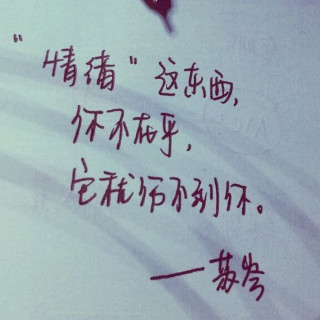 “情绪”这东西，
你不在乎，
它就伤不到你。
——苏岑